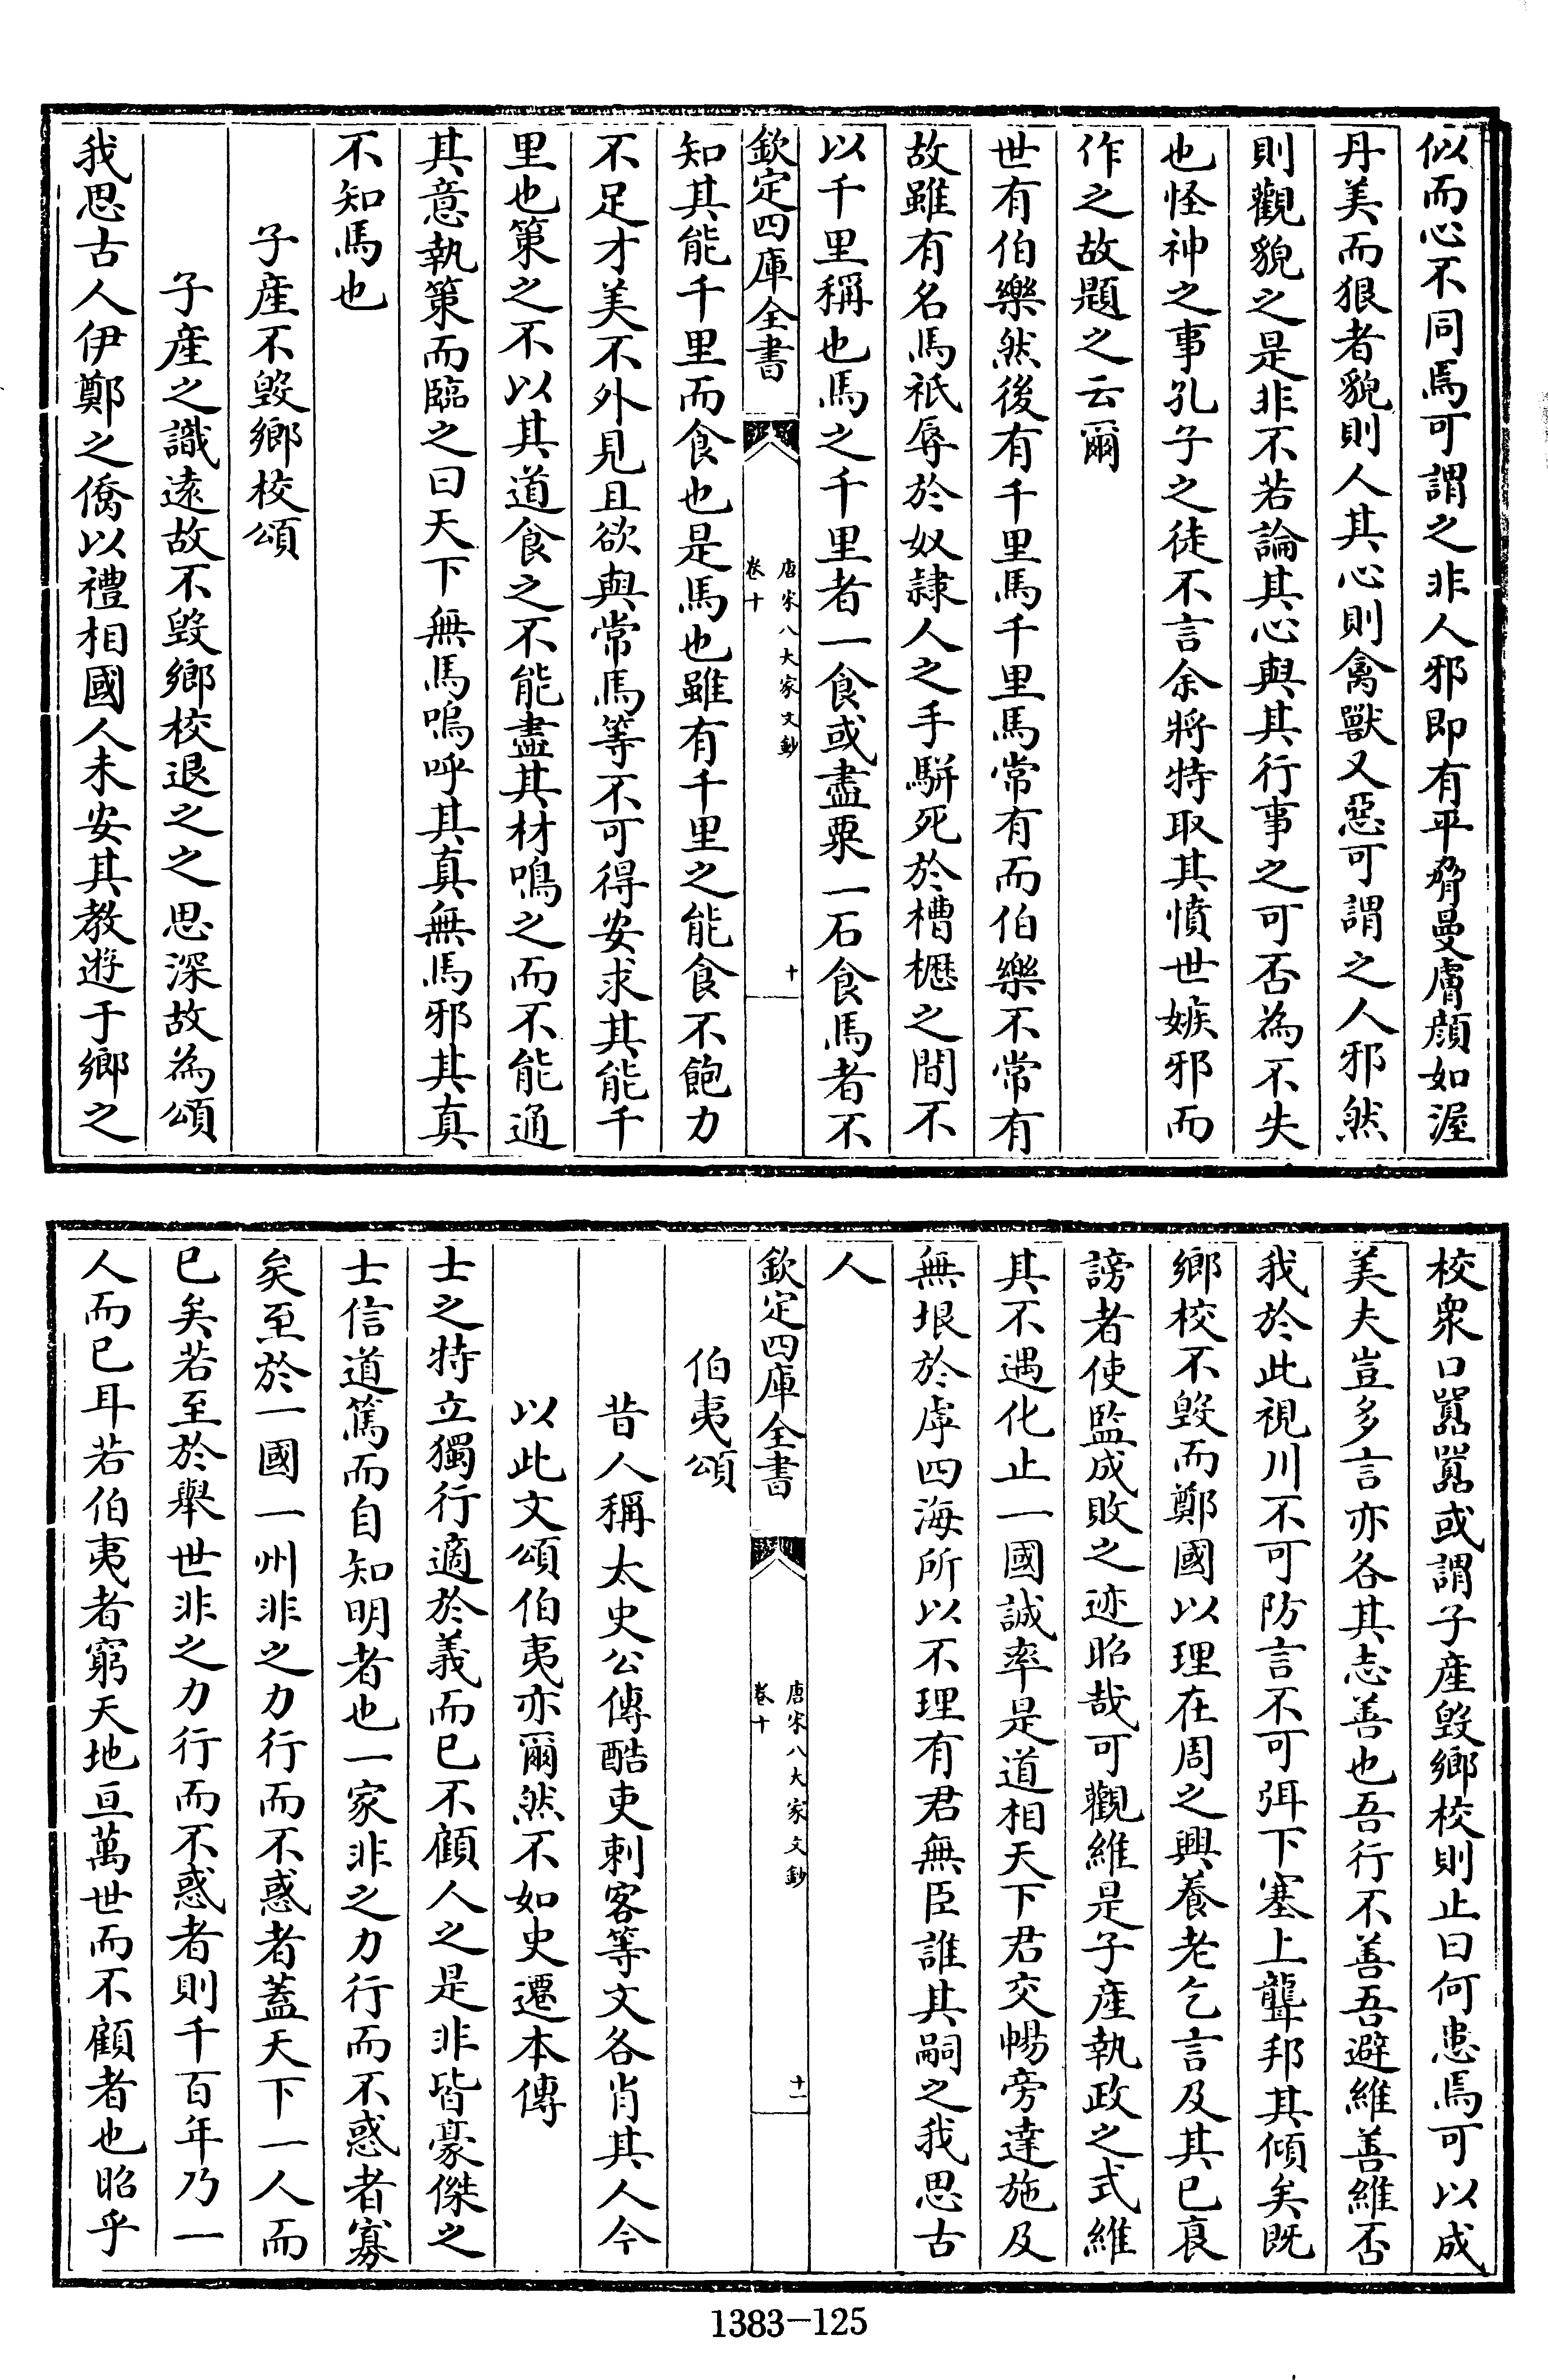 似而心不同焉可謂之非人邪即有平脅曼膚顔如渥
丹美而狠者貌則人其心則禽獸又惡可謂之人邪然
則觀貌之是非不若論其心與其行事之可否為不失
也怪神之事孔子之徒不言余將特取其憤世嫉邪而
作之故題之云爾
世有伯樂然後有千里馬千里馬常有而伯樂不常有
故雖有名馬祇辱於奴隷人之手駢死於槽櫪之間不
以千里稱也馬之千里者一食或盡粟一石食馬者不
欽定四庫全書
唐宋八大家文鈔
卷十
十
知其能千里而食也是馬也雖有千里之能食不飽力
不足才美不外見且欲與常馬等不可得安求其能千
里也策之不以其道食之不能盡其材鳴之而不能通
其意執策而臨之曰天下無馬嗚呼其真無馬邪其真
不知馬也
子産不毀鄉校頌
子産之識遠故不毀鄉校退之之思深故為頌
我思古人伊鄭之僑以禮相國人未安其教遊于鄉之
校衆口囂囂或謂子産毀鄉校則止曰何患焉可以成
美夫豈多言亦各其志善也吾行不善吾避維善維否
我於此視川不可防言不可弭下塞上聾邦其傾矣既
鄉校不毀而鄭國以理在周之興養老乞言及其已衰
謗者使監成敗之迹昭哉可觀維是子産執政之式維
其不遇化止一國誠率是道相天下君交暢旁達施及
無垠於虖四海所以不理有君無臣誰其嗣之我思古
人
欽定四庫全書
唐宋八大家文鈔
卷十
十一
伯夷頌
昔人稱太史公傳酷吏刺客等文各肖其人今
以此文頌伯夷亦爾然不如史遷本傳
士之特立獨行適於義而已不顧人之是非皆豪傑之
士信道篤而自知明者也一家非之力行而不惑者寡
矣至於一國一州非之力行而不惑者蓋天下一人而
已矣若至於舉世非之力行而不惑者則千百年乃一
人而已耳若伯夷者窮天地亘萬世而不顧者也昭乎
1383-125